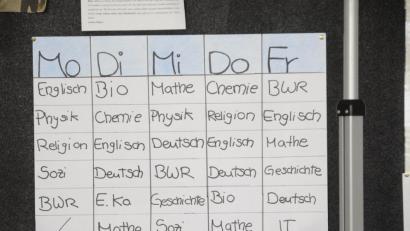 Mo Di Mi Do Fr
Englisch Bio Mathe Chemie BWR
Physik Chemie Physik Religion Englisch
Religion Englisch Deutsch Englisch Mathe
Sozi Deutsch BWR Deutsch Geschichte
BWR E.Ka Geschichte Bio Deutsch
/ Mathe Sozi Mathe IT